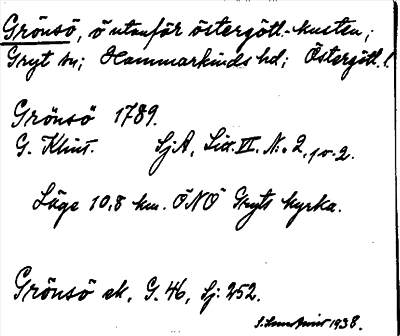 Grönsö, ö utanför östergötl.-kusten,;
Gryt sn; Hammarkinds hd; Östergötl. l
Grönsö 1789.
G. Klint. Sj.A, Lit. VI. N:o 2, 1 v. 2.
Läge 10,8 km. ÖNÖ Gryts kyrka.
Grönsö ek. G. 46, Sj: 252.
1938.